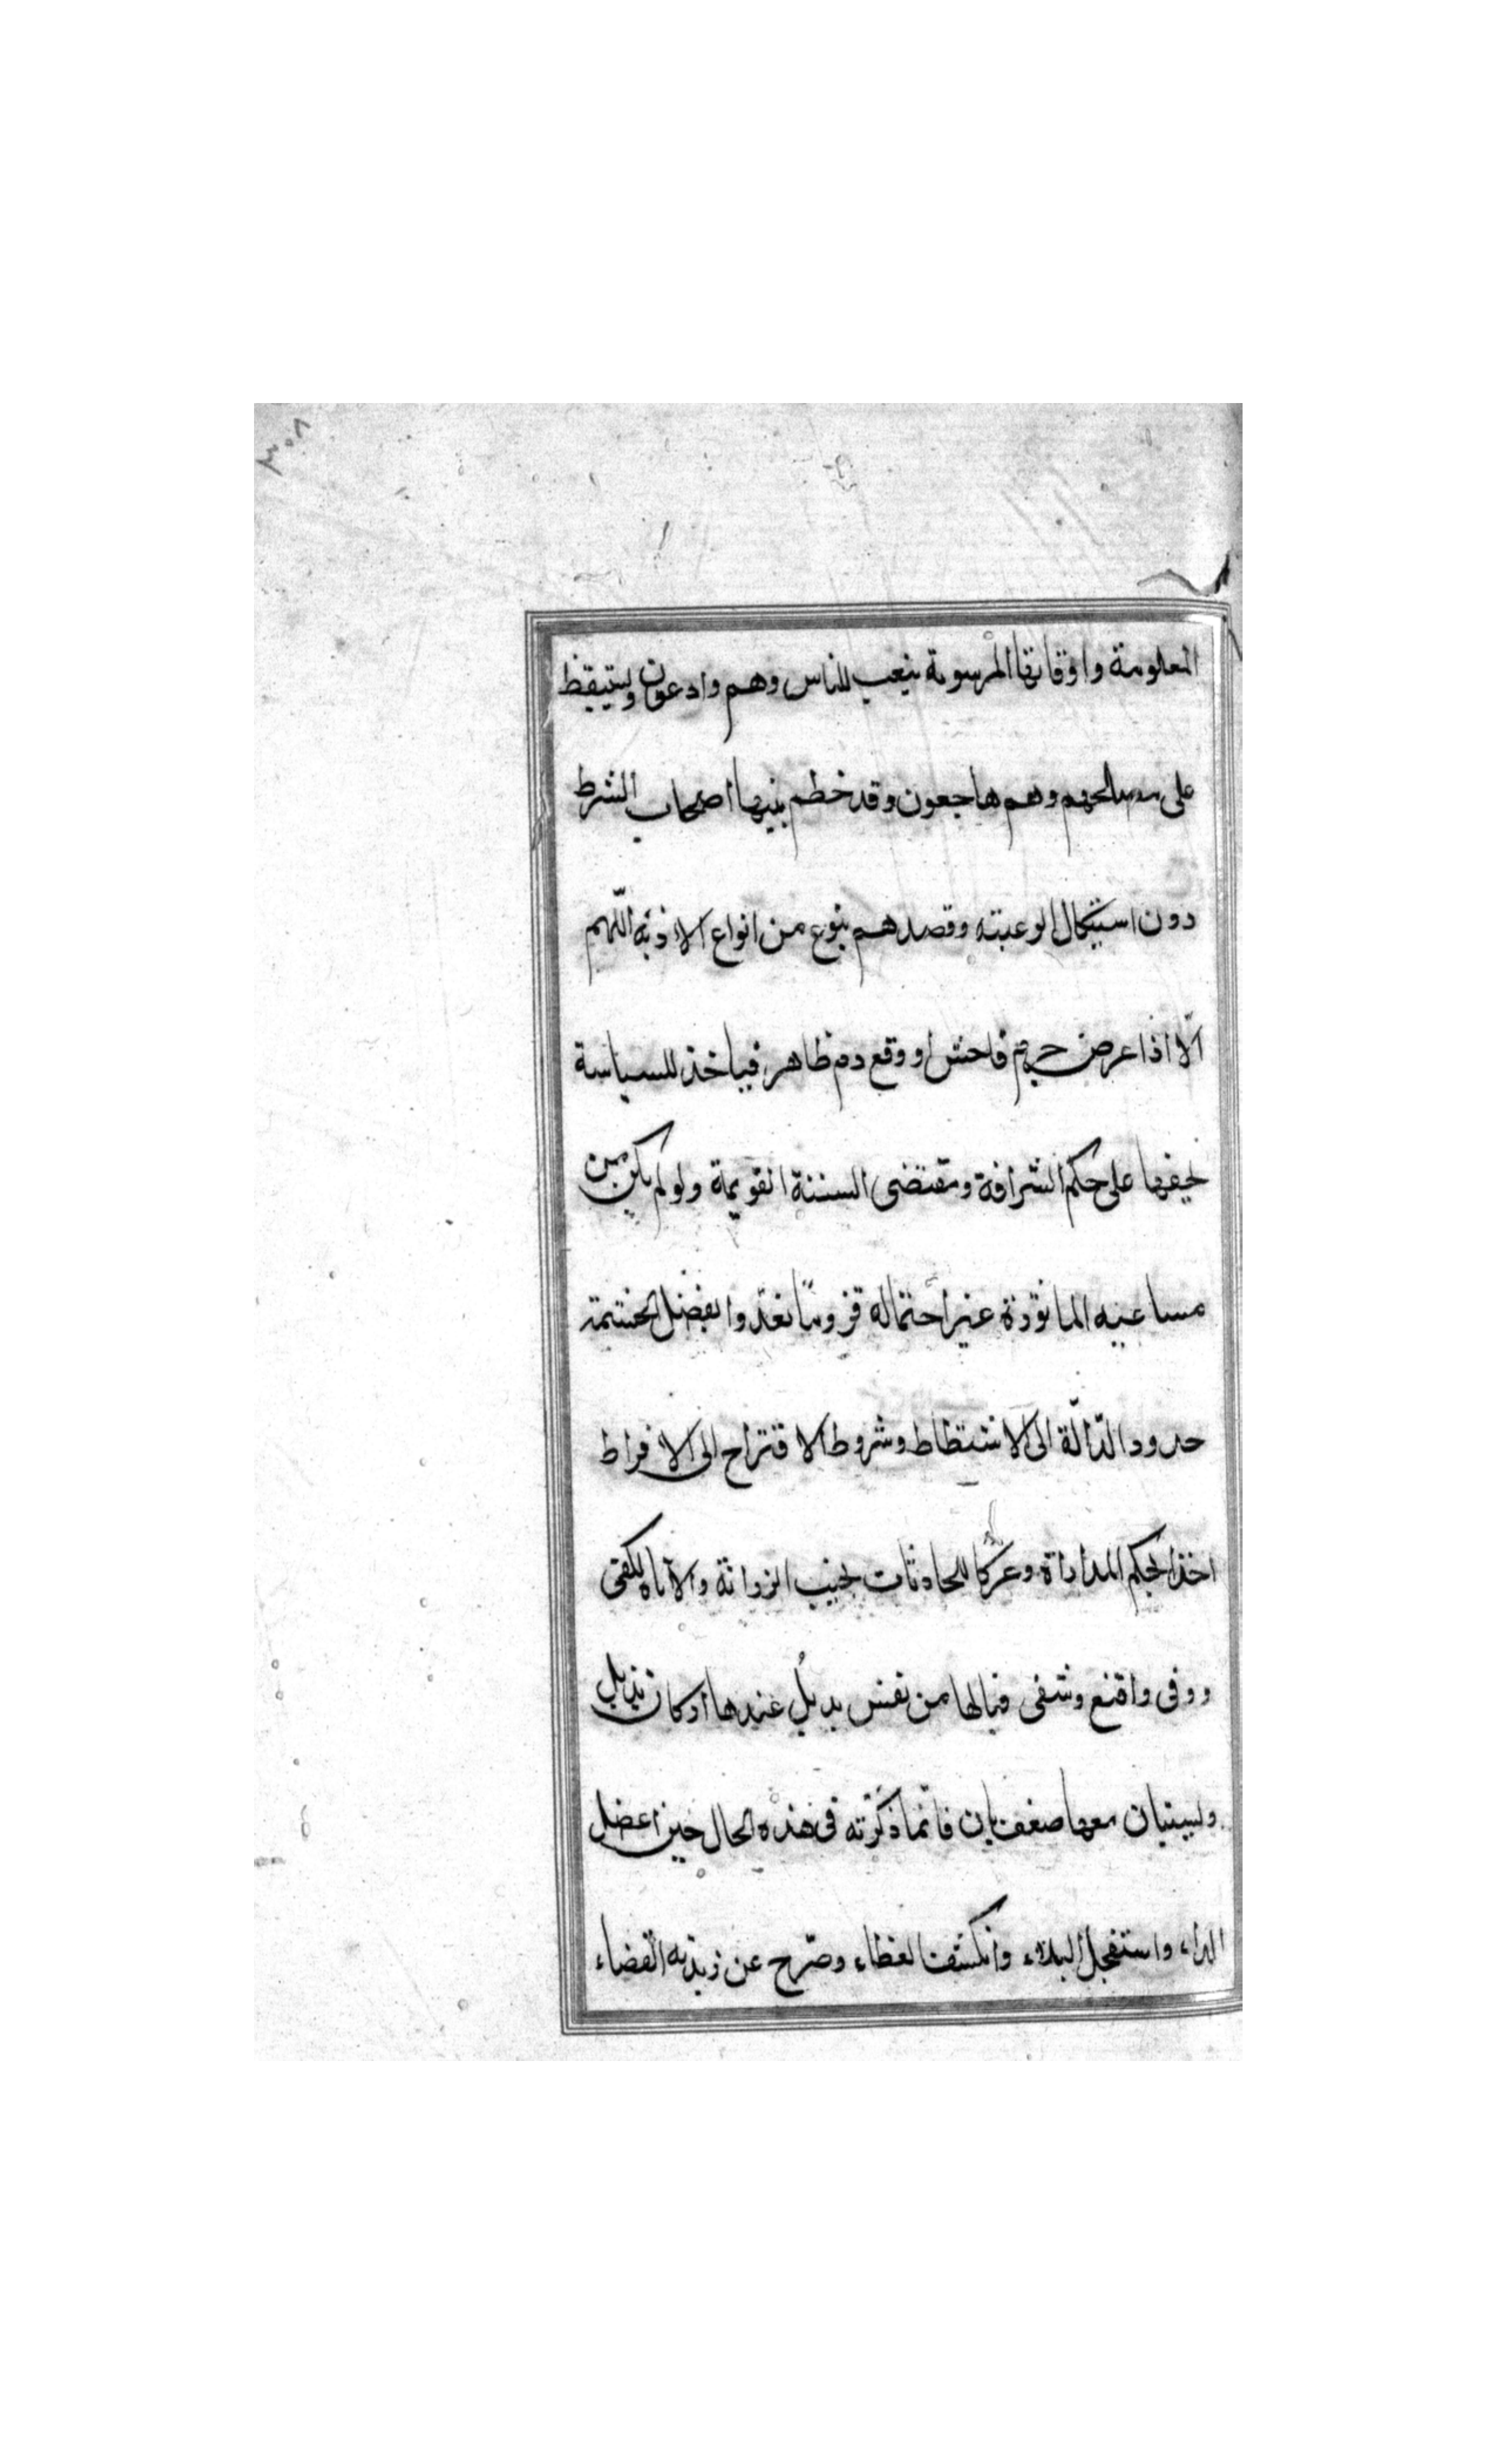 ٣٠٨
المعلومة واوقاتها المرسومة يتعب للناس وهم وادعون ويستيقظ
على مصالحهم وهم هاجعون وقد خطم بنيها اصحاب الشرط
دون استيكال الرعية وقصدهم بنوع من انواع الاذية اللهم
الّا اذا عرض جرم فاحش او وقع دم ظاهر فياخذ للسياسة
بحيفها على حكم الشرافة ومقتضى السنة القويمة ولو لم يكن من
مساعيه الماثورة غير احتماله قروما تعدّوا بفضل الحشمة
حدود الدّالّة الى الاشتطاط وشروط الاقتراح الى الافراط
اخذا بحكم المداراة وعركا للحادثات بجنب الرزانة والاناة لكفى
ووفى واقنع وشفى فيالها من نفس يذبل عندها اركان يذبل
ولبنان معها ضعفان فانما ذكرته فى هذه الحال حين اعضل
الداء واستفحل البلاء وانكشف الغطاء وصرّح عن زبدته القضاء